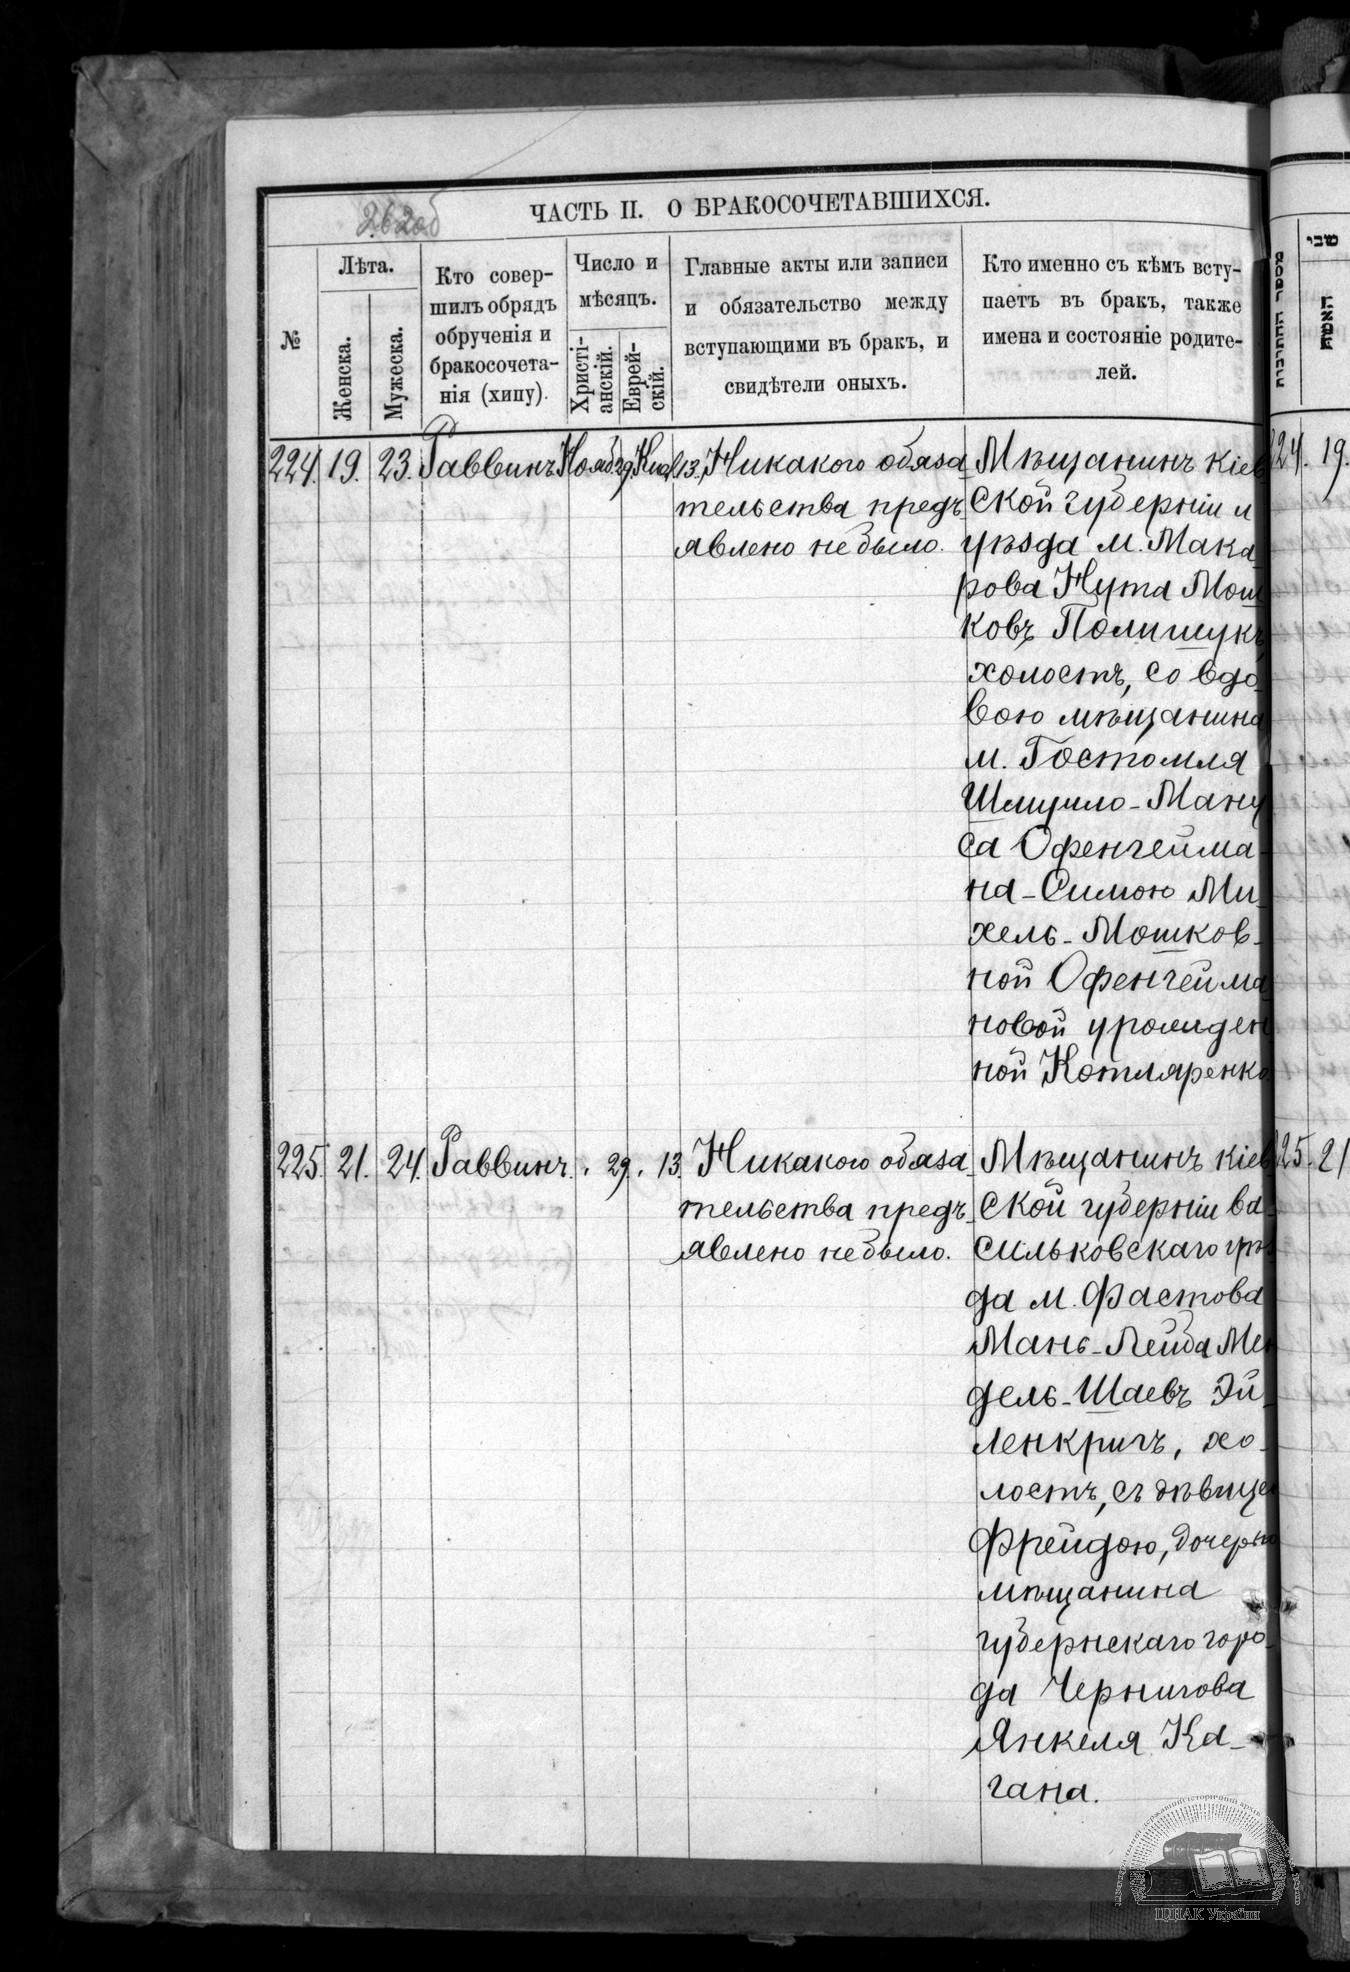 262об
ЧАСТЬ II. О БРАКОСОЧЕТАВШИХСЯ.
№
Лѣта.
Женска.
Мужеска.
Кто совер-
шилъ обрядъ
обрученія и
бракосочета-
нія (хипу).
Число и
мѣсяцъ.
Христі-
анскій.
Еврей-
скій.
Главные акты или записи
и обязательство между
вступающими въ бракъ, и
свидѣтели оныхъ.
Кто именно съ кѣмъ всту-
паетъ въ бракъ, также
имена и состояніе родите-
лей.
224. 19. 23. Раввинъ Нояб 29. 13. Никакого обяза-
тельства предъ-
явлено не было.
Мѣщанинъ Кіев
ской губерніи и
уѣзда м. Мака-
рова Нута Мош
ковъ Полищукъ,
холостъ, со вдо-
вою мѣщанина
м. Гостомля
Шмуило-Ману
са Офенгейма-
на-Симою Ми-
хель-Мошков-
ной Офенгейма-
новой урожден
ной Котляренко
225. 21. 24. Раввинъ. 29. 13. Никакого обяза-
тельства предъ-
явлено не было.
Мѣщанинъ Кіев
ской губерніи Ва-
сильковскаго уѣз
да м. Фастова
Мань-Лейба Мен
дель-Шаевъ Эй-
ленкригъ, хо-
лостъ, съ дѣвицею
Фрейдою, дочерью
мѣщанина
губернскаго горо-
да Чернигова
Янкеля Ка-
гана.
שבי
224. 19.
225. 21
ЦДІАК України